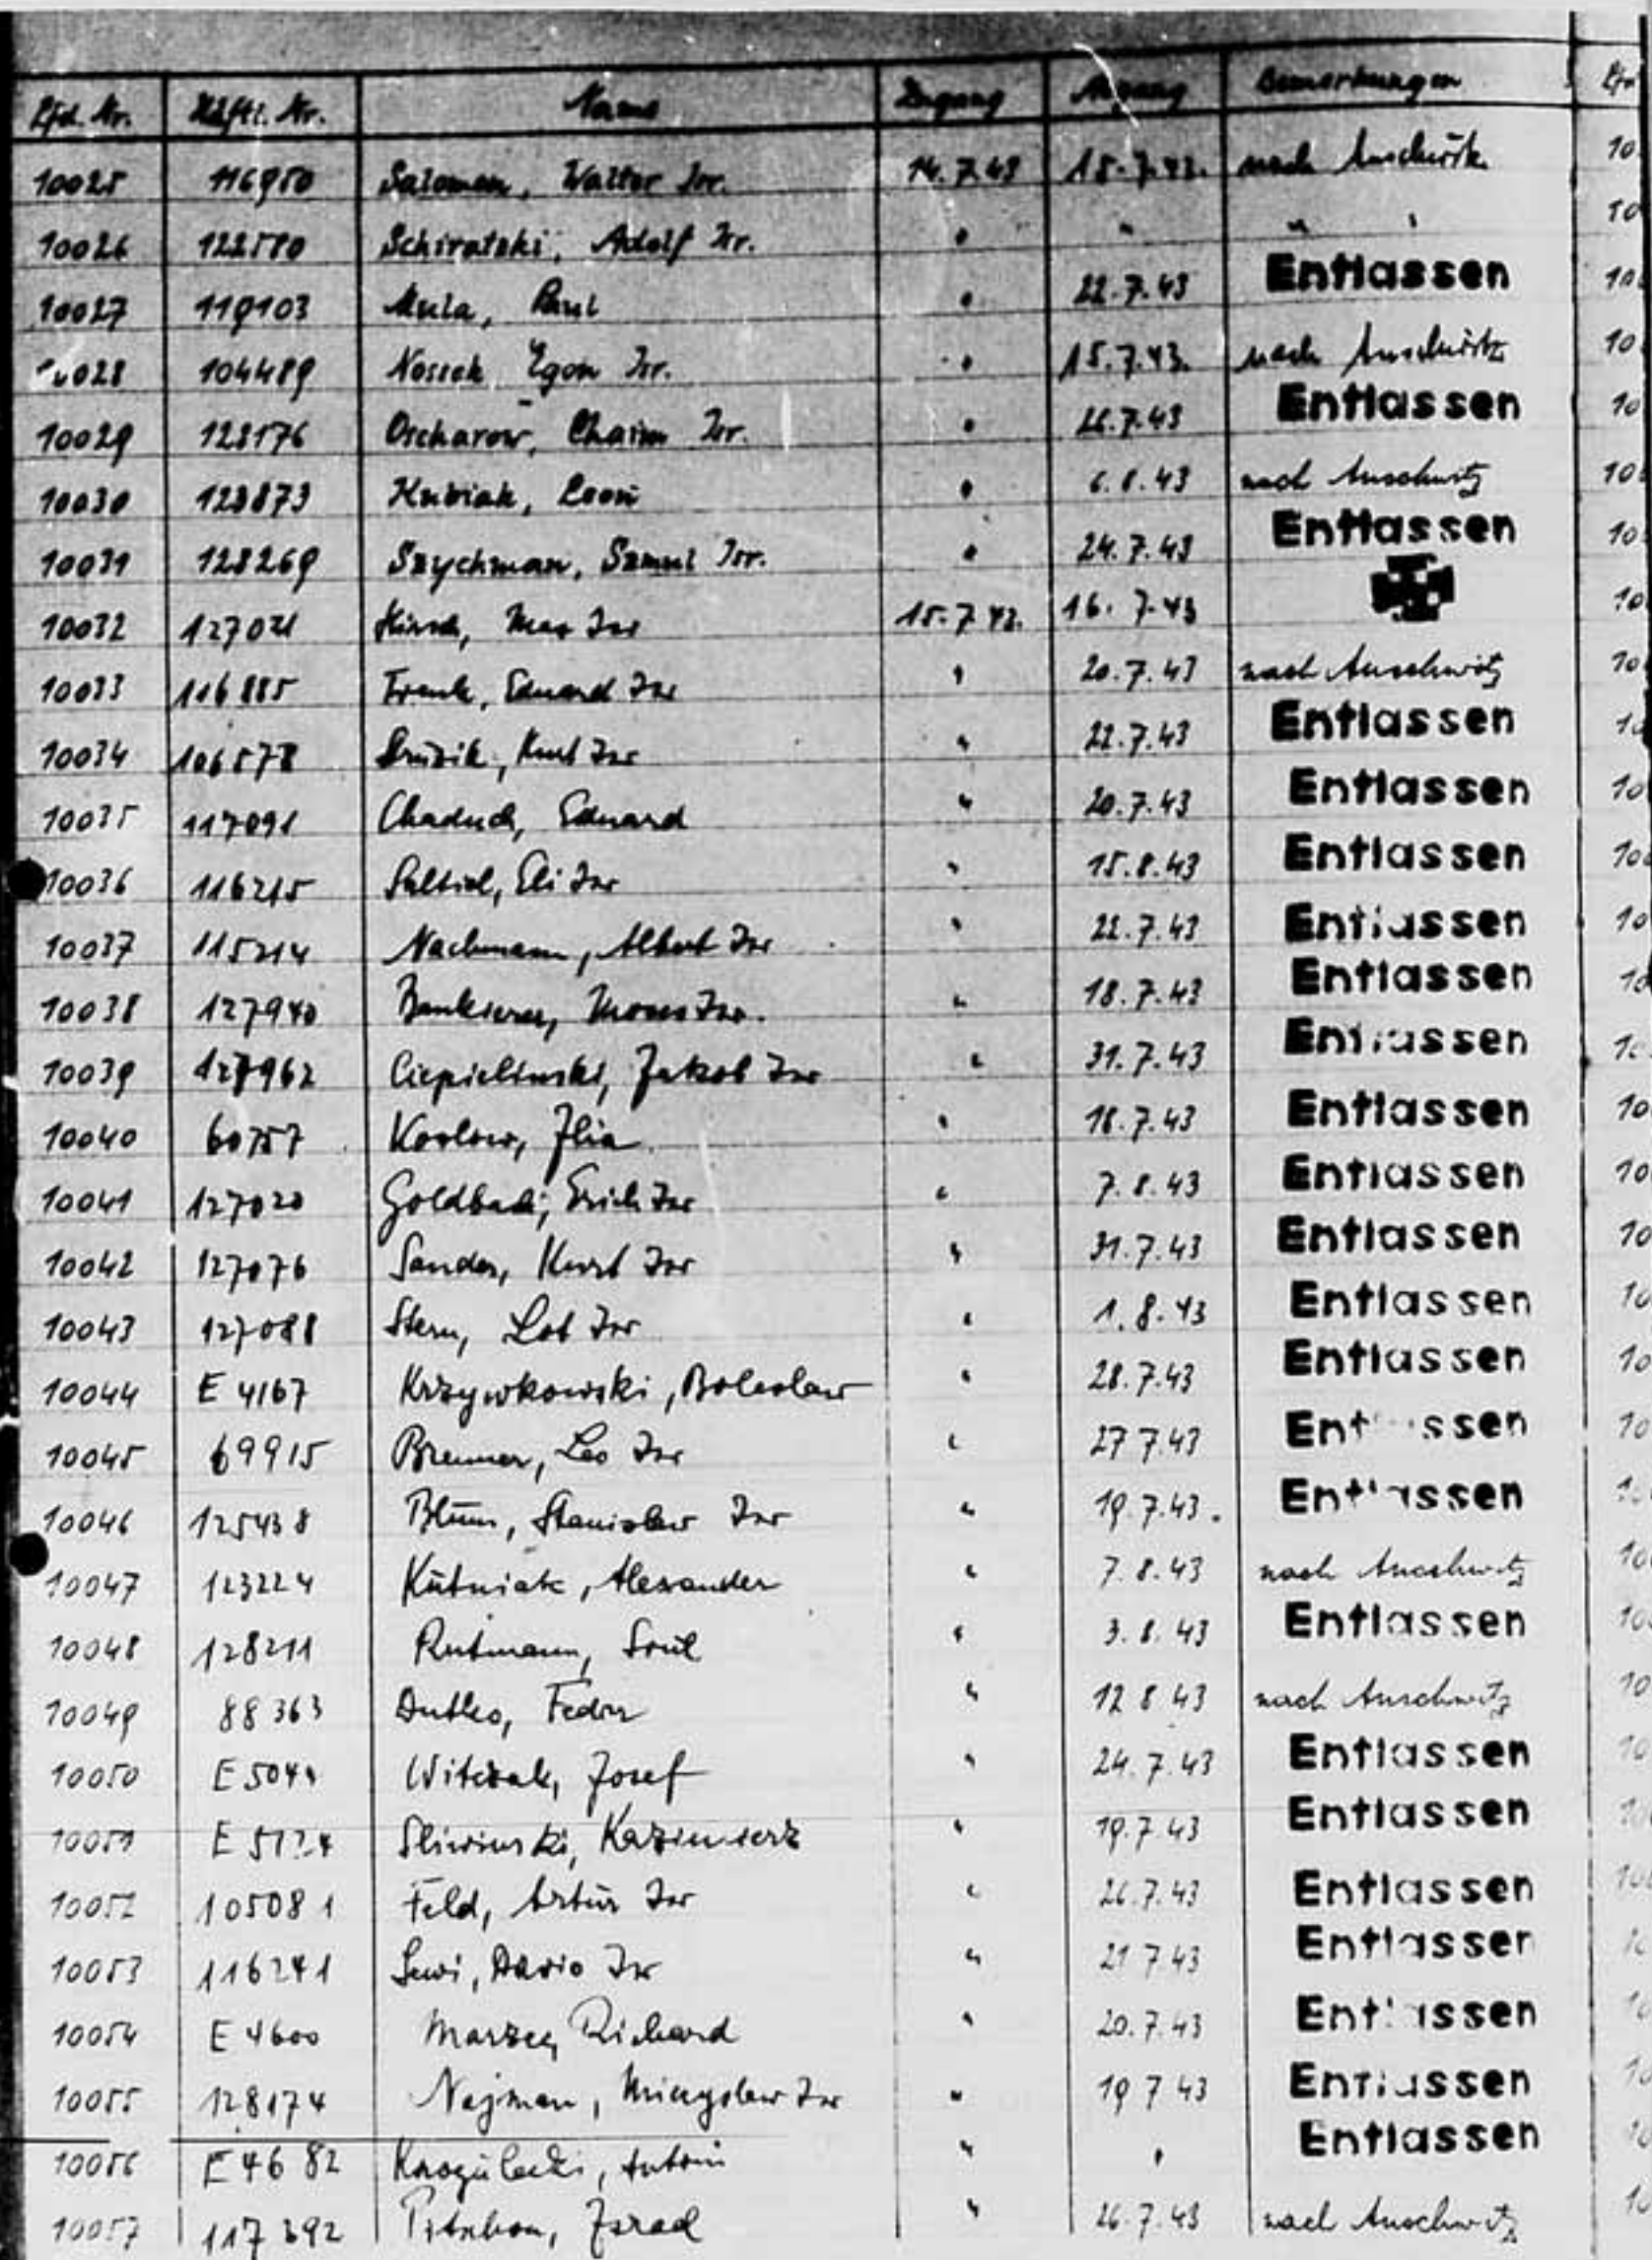 Lfd. Nr. Häftl. Nr. Name Zugang Abgang Bemerkungen Lfd
10025 116950 Salomon, Walter Isr. 14.7.43 15.7.43. nach Auschwitz 10
10026 122580 Schiratzki, Adolf Isr. " " " " 10
10027 119103 Paul " 22.7.43 Entlassen 10
10028 104489 Nossek Egon Isr. " 15.7.43. nach Auschwitz 10
10029 128176 Oscharow, Chaim Isr. " 26.7.43 Entlassen 10
10030 123873 Kubiak, Leon " 6.8.43 nach Auschwitz 10
10031 128269 Szychman, Szmul Isr. " 24.7.43 Entlassen 10
10032 127021 Hirsch, Max Isr 15.7.43. 16.7.43 10
10033 116885 Frank, Eduard Isr " 20.7.43 nach Auschwitz 10
10034 106578 Kurt Isr " 22.7.43 Entlassen
10035 117091 Chaduch, Eduard " 20.7.43 Entlassen 10
10036 116215 Saltiel, Eli Isr " 15.8.43 Entlassen 10
10037 115214 Nachmann, Albert Isr " 22.7.43 Entlassen 10
10038 127940 Moses Isr. " 18.7.43 Entlassen 10
10039 127962 Ciepielinski, Jakob Isr " 31.7.43 Entlassen
10040 60757 Koslow, Ilia " 18.7.43 Entlassen 10
10041 127020 Erich Isr " 7.8.43 Entlassen 10
10042 127076 Sander, Kurt Isr " 31.7.43 Entlassen 10
10043 127088 Stern, Lot Isr " 1.8.43 Entlassen 10
10044 E 4167 Krzywkowski, Boleslaw " 28.7.43 Entlassen 10
10045 69915 Brenner, Leo Isr " 27 7.43 Entlassen 10
10046 125438 Blum, Stanislaw Isr " 19.7.43. Entlassen
10047 123224 Kutniak, Alexander " 7.8.43 nach Auschwitz 10
10048 128211 Rutmann, Srul " 3.8.43 Entlassen 10
10049 88363 Dutko, Fedor " 12 8 43 nach Auschwitz 10
10050 Witczak, Josef " 24.7.43 Entlassen 10
10051 Sliwinski, Kazimierz " 19.7.43 Entlassen
10052 105081 Feld, Artur Isr " 26.7.43 Entlassen
10053 116241 Lewi, Dario Isr " 21 7 43 Entlassen
10054 E 4600 Marzec, Richard " 20.7.43 Entlassen
10055 128174 Najman, Isr " 19 7 43 Entlassen 10
10056 E 4682 Antoni " " Entlassen
10057 117392 Pitschon, Israel " 26.7.43 nach Auschwitz 10